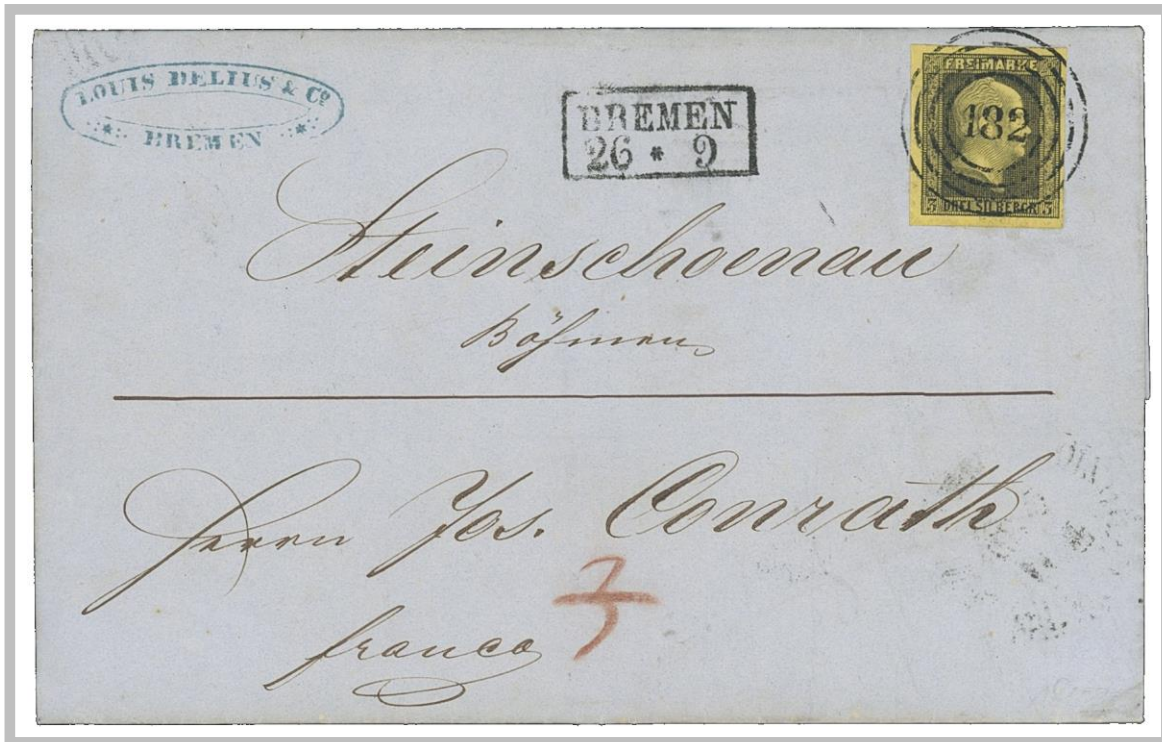 LOUIS DELIUS & Cº
BREMEN
BREMEN
26 * 9
FREIMARKE
182
3 DREI SILBERGR. 3
Steinschoenau
Böhmen
Herrn Jos. Conrath
3
franco